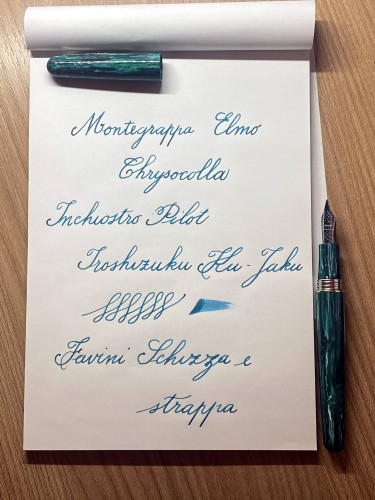 Montegrappa Elmo
Chrysocolla
Inchiostro Pilot
Iroshizuku Ku-Jaku
Favini Schizza e
strappa